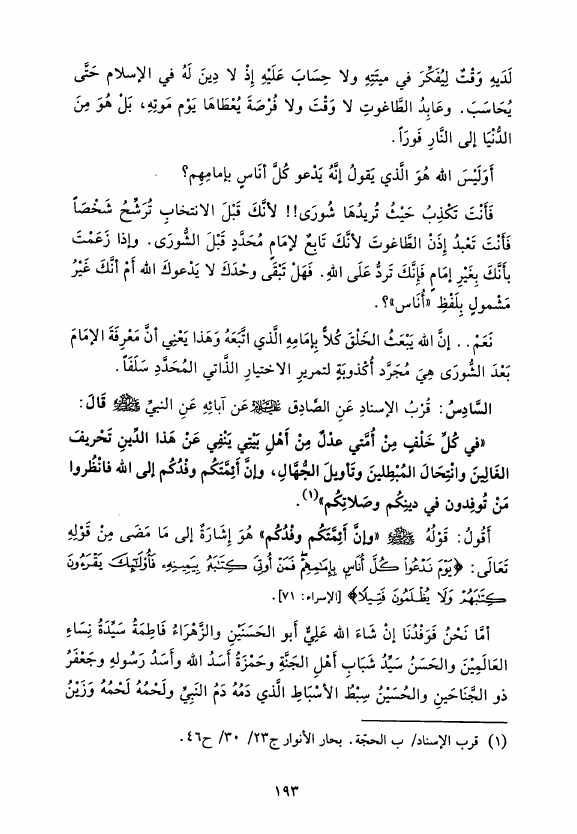 لَدَيهِ وَقْتٌ لِيُفَكِّرَ في ميتَتِهِ ولا حِسَابَ عَلَيْهِ إِذْ لا دِينَ لَهُ في الإسلام حَتَّى
يُحَاسَبَ. وعَابِدُ الطَّاغوتِ لا وَقْتَ ولا فُرْصَةَ يُعْطَاهَا يَوْمَ مَوتِهِ، بَلْ هُوَ مِنَ
الدُّنْيَا إلى النَّارِ فَوراً.
أَوَلَيْسَ الله هُوَ الَّذي يَقولُ إِنَّهُ يَدْعو كُلَّ أنَاسٍ بإمامِهِم؟
فَأَنْتَ تَكْذِبُ حَيْثُ تُريدُهَا شُورَى!! لأنَّكَ قَبْلَ الانتخابِ تُرَشِّحُ شَخْصَاً
فَأَنْتَ تَعْبُدُ إِذَنْ الطَّاغوتَ لأنَّكَ تَابِعٌ لإمَامٍ مُحَدَّدٍ قَبْلَ الشُّورَى. وإذا زَعَمْتَ
بأنَّكَ بِغَيْرِ إمَامٍ فَإِنَّكَ تَردُّ عَلَى اللهِ. فَهَلْ تَبْقَى وحْدَكَ لا يَدْعوكَ الله أمْ أنَّكَ غَيْرُ
مَشْمولٍ بِلَفْظِ «أُنَاس»؟.
نَعَمْ.. إنَّ الله يَبْعَثُ الخَلْقَ كُلاًّ بإمَامِهِ الَّذي اتَّبَعَهُ وَهَذا يَعْنِي أنَّ مَعْرِفَةَ الإمَامَ
بَعْدَ الشُّورَى هِيَ مُجَرَّد أُكْذوبَةٍ لتمريرِ الاختيارِ الذَّاتي المُحَدَّدِ سَلَفَاً.
السَّادِسُ: قُرْبُ الإسنادِ عَنِ الصَّادِقِ عَلَيْهِ السَّلام عَن آبائِهِ عَنِ النبيِّ ﷺ قَالَ:
«في كُلِّ خَلْفٍ مِنْ أُمَّتي عدْلٌ مِنْ أهْلِ بَيْتِي يَنْفِي عَنْ هَذا الدِّينِ تَحْريفَ
الغَالِينَ وانْتِحَالَ المُبْطِلينَ وتَأويلَ الجُهَّالِ، وإنَّ أَئِمَّتَكُم وفْدُكُم إلى الله فانْظُروا
مَنْ تُوفِدون في دينِكُم وصَلاتِكُم»(١).
أَقُولُ: قَوْلُهُ ﷺ «وإنَّ أَئِمَّتَكُم وفْدُكُم» هُوَ إشَارَةٌ إلى مَا مَضَى مِنْ قَوْلِهِ
تَعَالَى: ﴿يَوْمَ نَدْعُواْ كُلَّ أُنَاسٍۭ بِإِمَٰمِهِمْ ۖ فَمَنْ أُوتِىَ كِتَٰبَهُۥ بِيَمِينِهِۦ فَأُوْلَٰٓئِكَ يَقْرَءُونَ
كِتَٰبَهُمْ وَلَا يُظْلَمُونَ فَتِيلًا﴾ [الإسراء: ٧١].
أمَّا نَحْنُ فَوَفْدُنَا إنْ شَاءَ الله عَلِيٌّ أبو الحَسَنَيْنِ والزَّهْرَاءُ فَاطِمَةُ سَيِّدَةُ نِسَاءِ
العَالَمِيْنَ والحَسَنُ سَيِّدُ شَبَابِ أهْلِ الجَنَّةِ وحَمْزَةُ أسَدُ الله وأسَدُ رَسولِهِ وجَعْفَرُ
ذو الجَنَاحَينِ والحُسَيْنُ سِبْطُ الأسْبَاطِ الَّذي دَمُهُ دَمُ النَبِيِّ ولَحْمُهُ لَحْمُهُ وَزَيْنُ
(١) قرب الإسناد/ ب الحجّة. بحار الأنوار ج٢٣/ ٣٠/ ح٤٦.
١٩٣